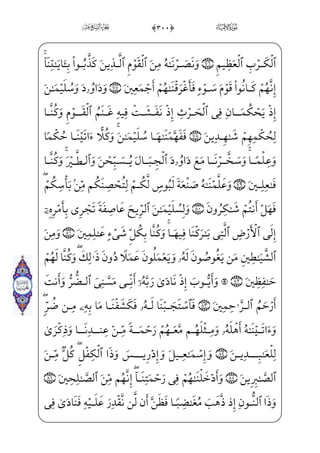 الجزء السابع عشر ﴿٣٠٠﴾ سورة الأنبياء
ٱلۡكَرۡبِ ٱلۡعَظِيمِ ﴿٧٦﴾ وَنَصَرۡنَـٰهُ مِنَ ٱلۡقَوۡمِ ٱلَّذِينَ كَذَّبُواْ بِـَٔايَـٰتِنَآۚ
إِنَّهُمۡ كَانُواْ قَوۡمَ سَوۡءٍ فَأَغۡرَقۡنَـٰهُمۡ أَجۡمَعِينَ ﴿٧٧﴾ وَدَاوُۥدَ وَسُلَيۡمَـٰنَ
إِذۡ يَحۡكُمَانِ فِى ٱلۡحَرۡثِ إِذۡ نَفَشَتۡ فِيهِ غَنَمُ ٱلۡقَوۡمِ وَكُنَّا
لِحُكۡمِهِمۡ شَـٰهِدِينَ ﴿٧٨﴾ فَفَهَّمۡنَـٰهَا سُلَيۡمَـٰنَۚ وَكُلًّا ءَاتَيۡنَا حُكۡمًا
وَعِلۡمًاۚ وَسَخَّرۡنَا مَعَ دَاوُۥدَ ٱلۡجِبَالَ يُسَبِّحۡنَ وَٱلطَّيۡرَۚ وَكُنَّا
فَـٰعِلِينَ ﴿٧٩﴾ وَعَلَّمۡنَـٰهُ صَنۡعَةَ لَبُوسٍ لَّكُمۡ لِتُحۡصِنَكُم مِّنۢ بَأۡسِكُمۡۖ
فَهَلۡ أَنتُمۡ شَـٰكِرُونَ ﴿٨٠﴾ وَلِسُلَيۡمَـٰنَ ٱلرِّيحَ عَاصِفَةً تَجۡرِى بِأَمۡرِهِۦٓ
إِلَى ٱلۡأَرۡضِ ٱلَّتِى بَـٰرَكۡنَا فِيهَاۚ وَكُنَّا بِكُلِّ شَىۡءٍ عَـٰلِمِينَ ﴿٨١﴾ وَمِنَ
ٱلشَّيَـٰطِينِ مَن يَغُوصُونَ لَهُۥ وَيَعۡمَلُونَ عَمَلًا دُونَ ذَٰلِكَۖ وَكُنَّا لَهُمۡ
حَـٰفِظِينَ ﴿٨٢﴾ ۞ وَأَيُّوبَ إِذۡ نَادَىٰ رَبَّهُۥٓ أَنِّى مَسَّنِىَ ٱلضُّرُّ وَأَنتَ
أَرۡحَمُ ٱلرَّٰحِمِينَ ﴿٨٣﴾ فَٱسۡتَجَبۡنَا لَهُۥ فَكَشَفۡنَا مَا بِهِۦ مِن ضُرٍّۖ
وَءَاتَيۡنَـٰهُ أَهۡلَهُۥ وَمِثۡلَهُم مَّعَهُمۡ رَحۡمَةً مِّنۡ عِندِنَا وَذِكۡرَىٰ
لِلۡعَـٰبِدِينَ ﴿٨٤﴾ وَإِسۡمَـٰعِيلَ وَإِدۡرِيسَ وَذَا ٱلۡكِفۡلِۖ كُلٌّ مِّنَ
ٱلصَّـٰبِرِينَ ﴿٨٥﴾ وَأَدۡخَلۡنَـٰهُمۡ فِى رَحۡمَتِنَآۖ إِنَّهُم مِّنَ ٱلصَّـٰلِحِينَ ﴿٨٦﴾
وَذَا ٱلنُّونِ إِذ ذَّهَبَ مُغَـٰضِبًا فَظَنَّ أَن لَّن نَّقۡدِرَ عَلَيۡهِ فَنَادَىٰ فِى